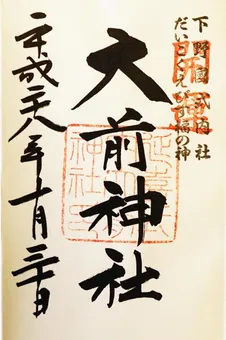 下野國式内社
だいこくえびす福の神
大前神社
平成二八年十月三十日